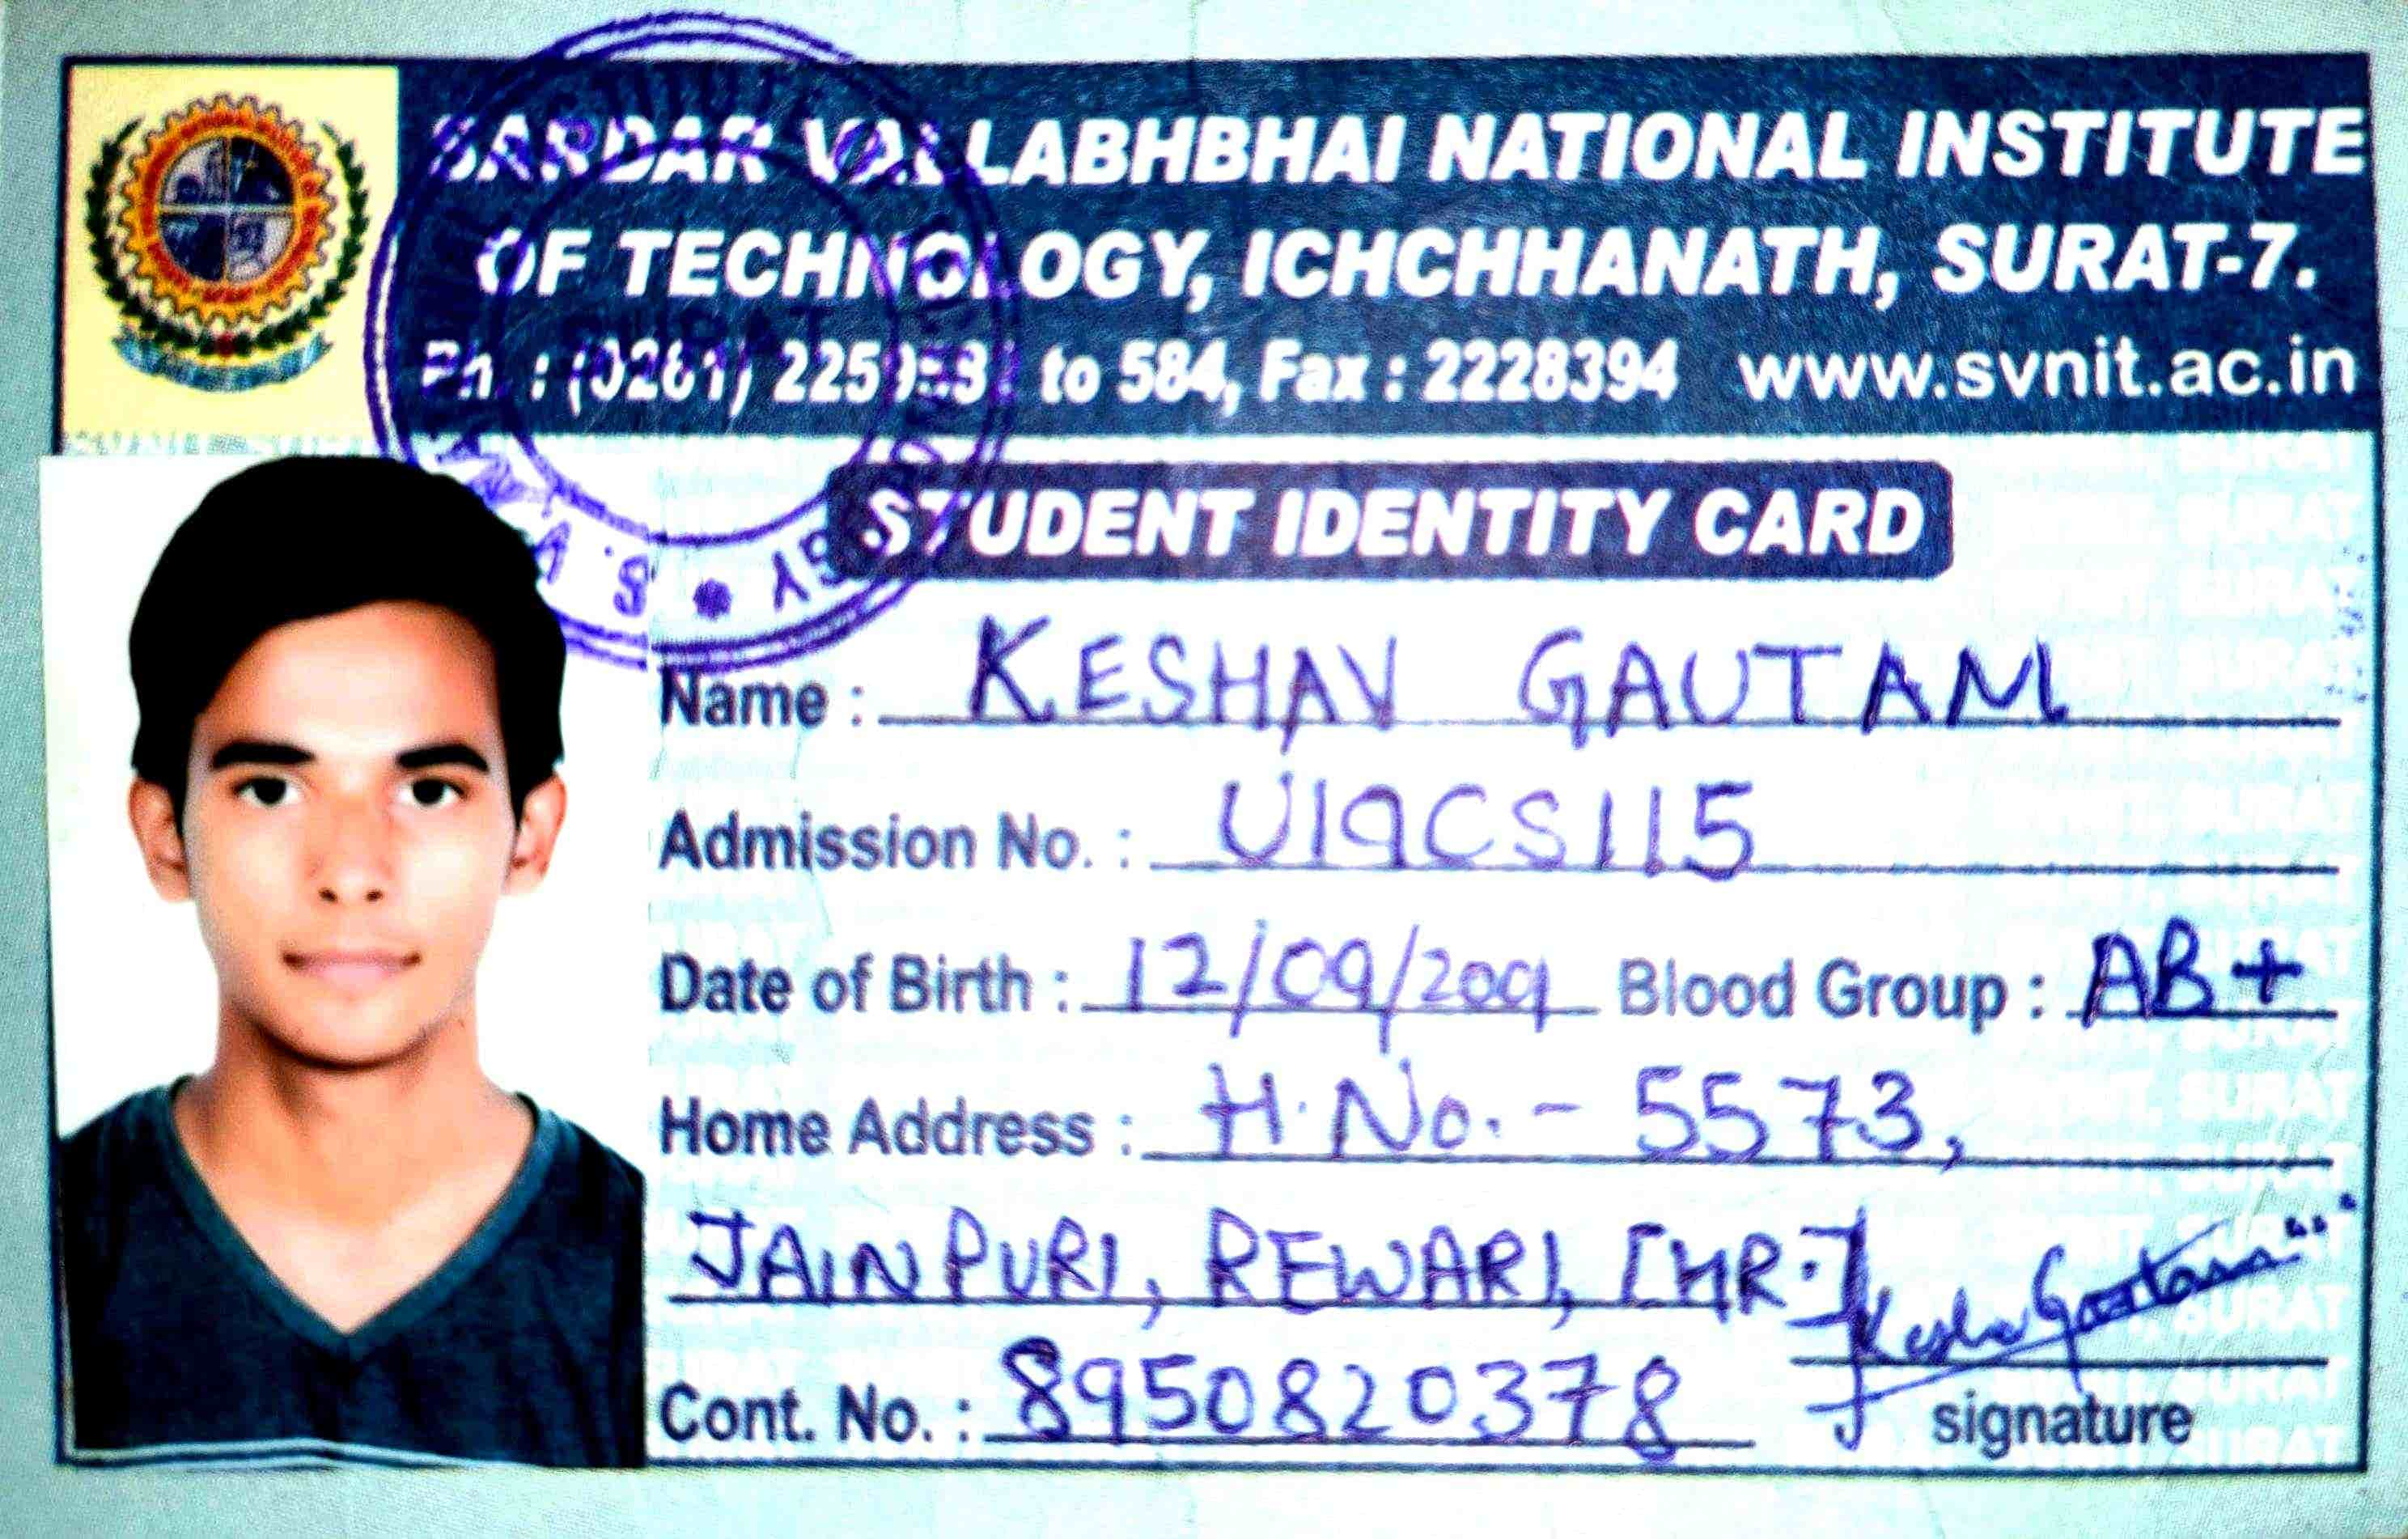 SARDAR VALLABHBHAI NATIONAL INSTITUTE
OF TECHNOLOGY, ICHCHHANATH, SURAT-7.
Ph. : (0261) to 584, Fax : 2228394 www.svnit.ac.in
SURAT
STUDENT IDENTITY CARD
Name : KESHAV GAUTAM
Admission No. : U19CS115
Date of Birth : 12/09/2001 Blood Group : AB+
Home Address : H. No. - 5573,
JAINPURI, REWARI, [HR.]
Keshav Gautam
Cont. No. : 8950820378
signature